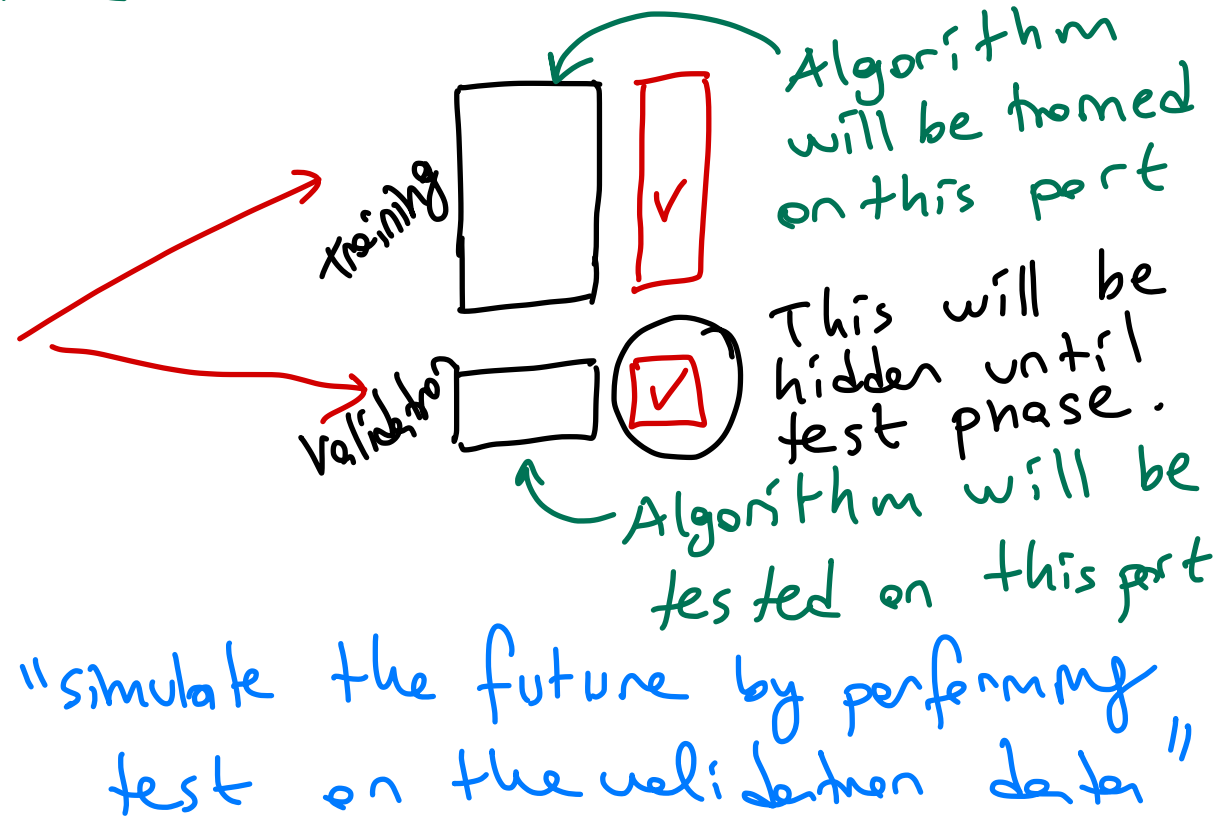 Algorithm
will be trained
on this part
training
This will be
hidden until
test phase.
validation
Algorithm will be
tested on this part
"simulate the future by performing
test on the validation data"